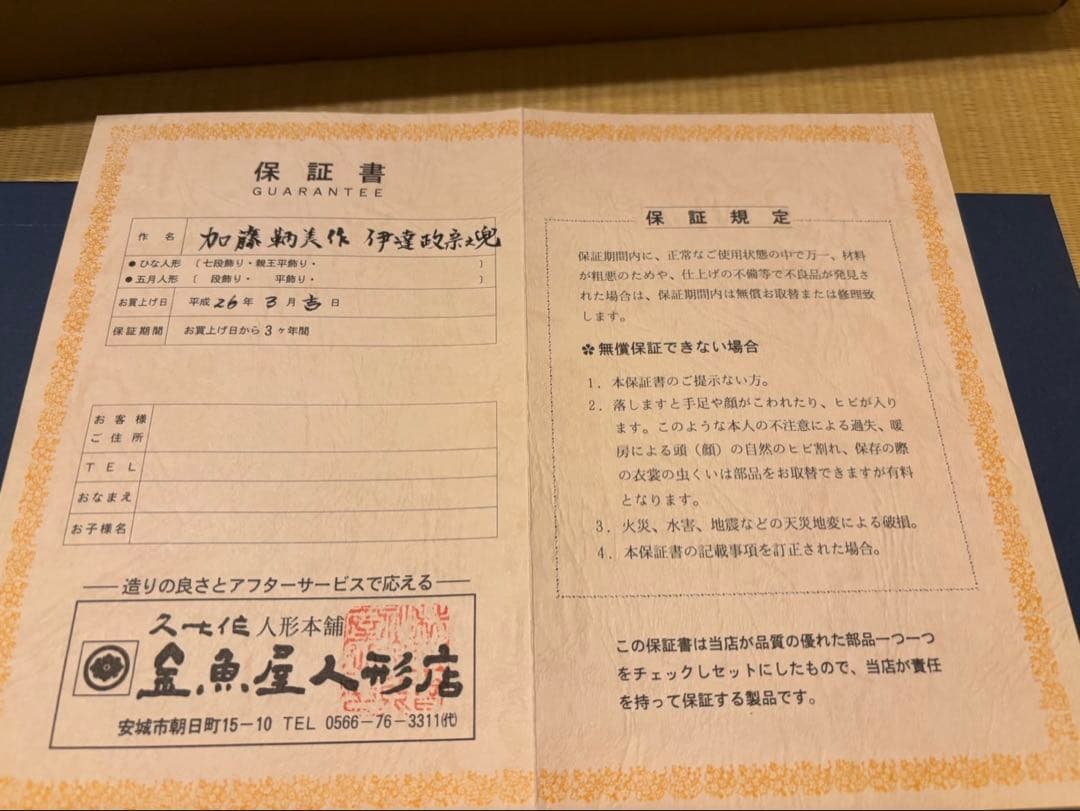 保証書
GUARANTEE
作名 加藤鞆美作 伊達政宗之兜
●ひな人形 〔七段飾り・親王平飾り・ 〕
●五月人形 〔 段飾り・ 平飾り・ 〕
お買上げ日 平成26年3月吉日
保証期間 お買上げ日から3ヶ年間
お客様
ご住所
TEL
おなまえ
お子様名
造りの良さとアフターサービスで応える
久七作 人形本舗
金魚屋人形店
安城市朝日町15-10 TEL 0566-76-3311㈹
保証規定
保証期間内に、正常なご使用状態の中で万一、材料
が粗悪のためや、仕上げの不備等で不良品が発見さ
れた場合は、保証期間内は無償お取替または修理致
します。
✽無償保証できない場合
1. 本保証書のご提示ない方。
2. 落しますと手足や顔がこわれたり、ヒビが入り
ます。このような本人の不注意による過失、暖
房による頭（顔）の自然のヒビ割れ、保存の際
の衣裳の虫くいは部品をお取替できますが有料
となります。
3. 火災、水害、地震などの天災地変による破損。
4. 本保証書の記載事項を訂正された場合。
この保証書は当店が品質の優れた部品一つ一つ
をチェックしセットにしたもので、当店が責任
を持って保証する製品です。